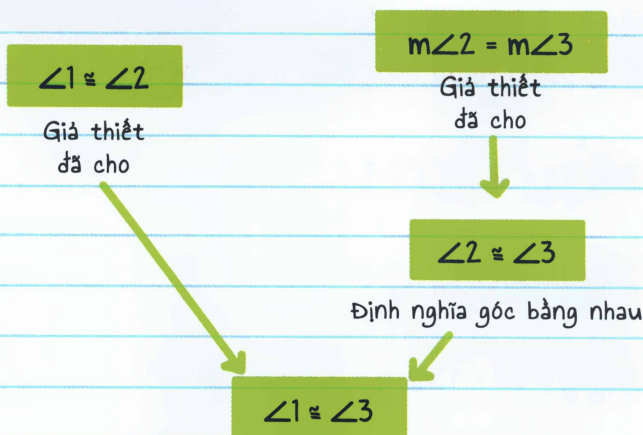 ∠1 ≅ ∠2
Giả thiết
đã cho
m∠2 = m∠3
Giả thiết
đã cho
∠2 ≅ ∠3
Định nghĩa góc bằng nhau
∠1 ≅ ∠3